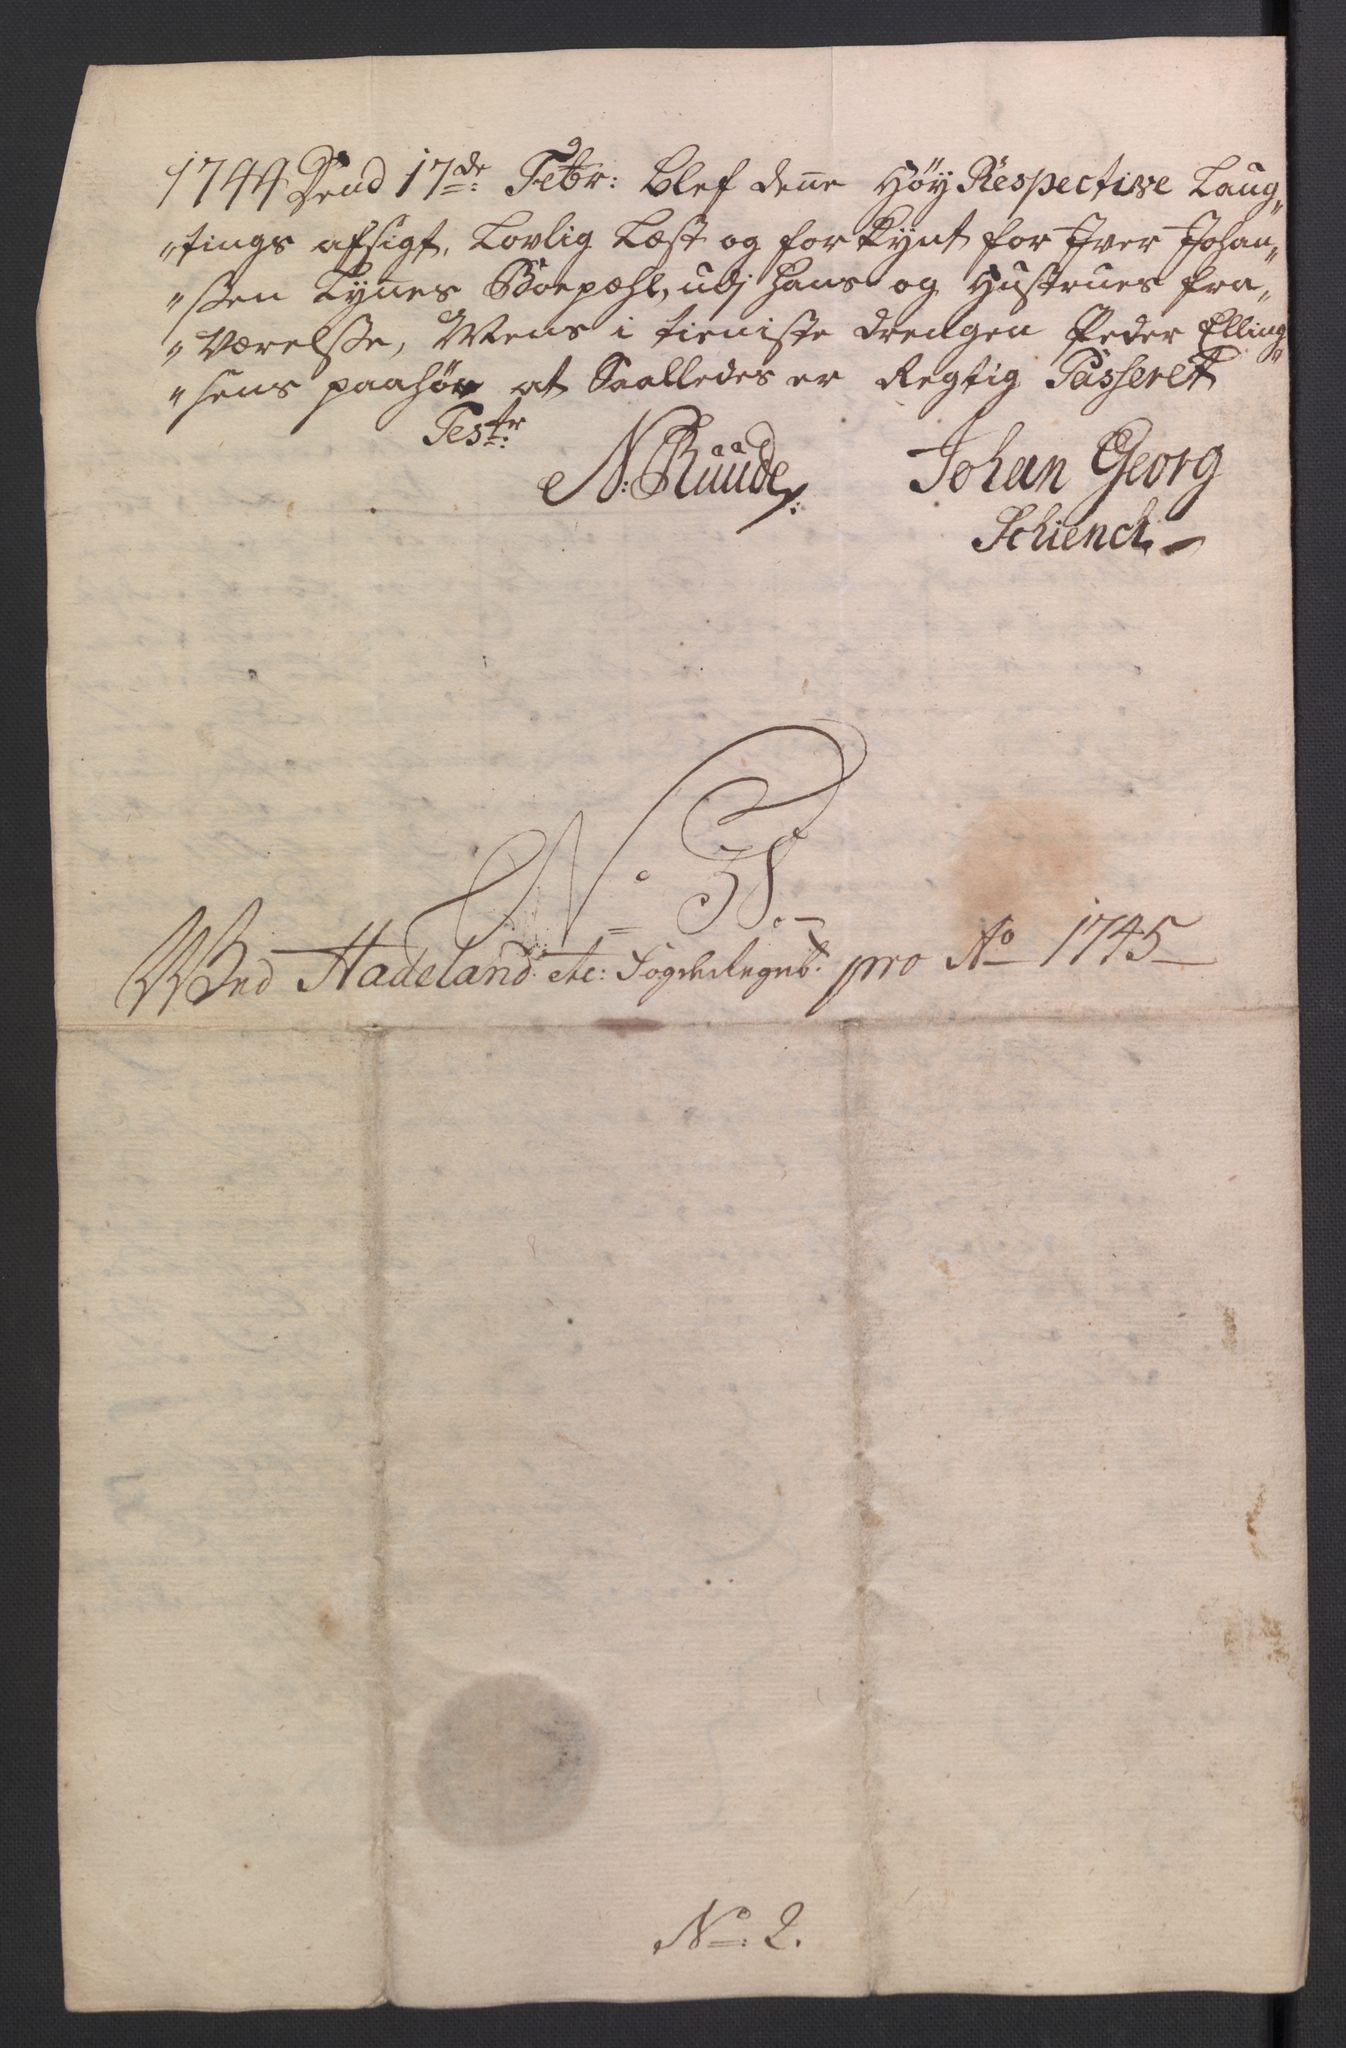 1744 Dend 17de Febr: blef denne Høy Respective Laug„
„tings afsigt, Lovlig Læst og forkynt for Iver Johan„
„ßen Tynes Boepæhl, udj hans og Hustrues fra„
„Værelsse, Mens i tieniste drengen Peder Elling„
„sens paahør at Saalledes er Regtig Passeret
Testr:
N: Ruude: Johan Georg
Schienck
No 38.
Med Hadeland etc: Fogderiregnb: pro Ao 1745
No: 2.